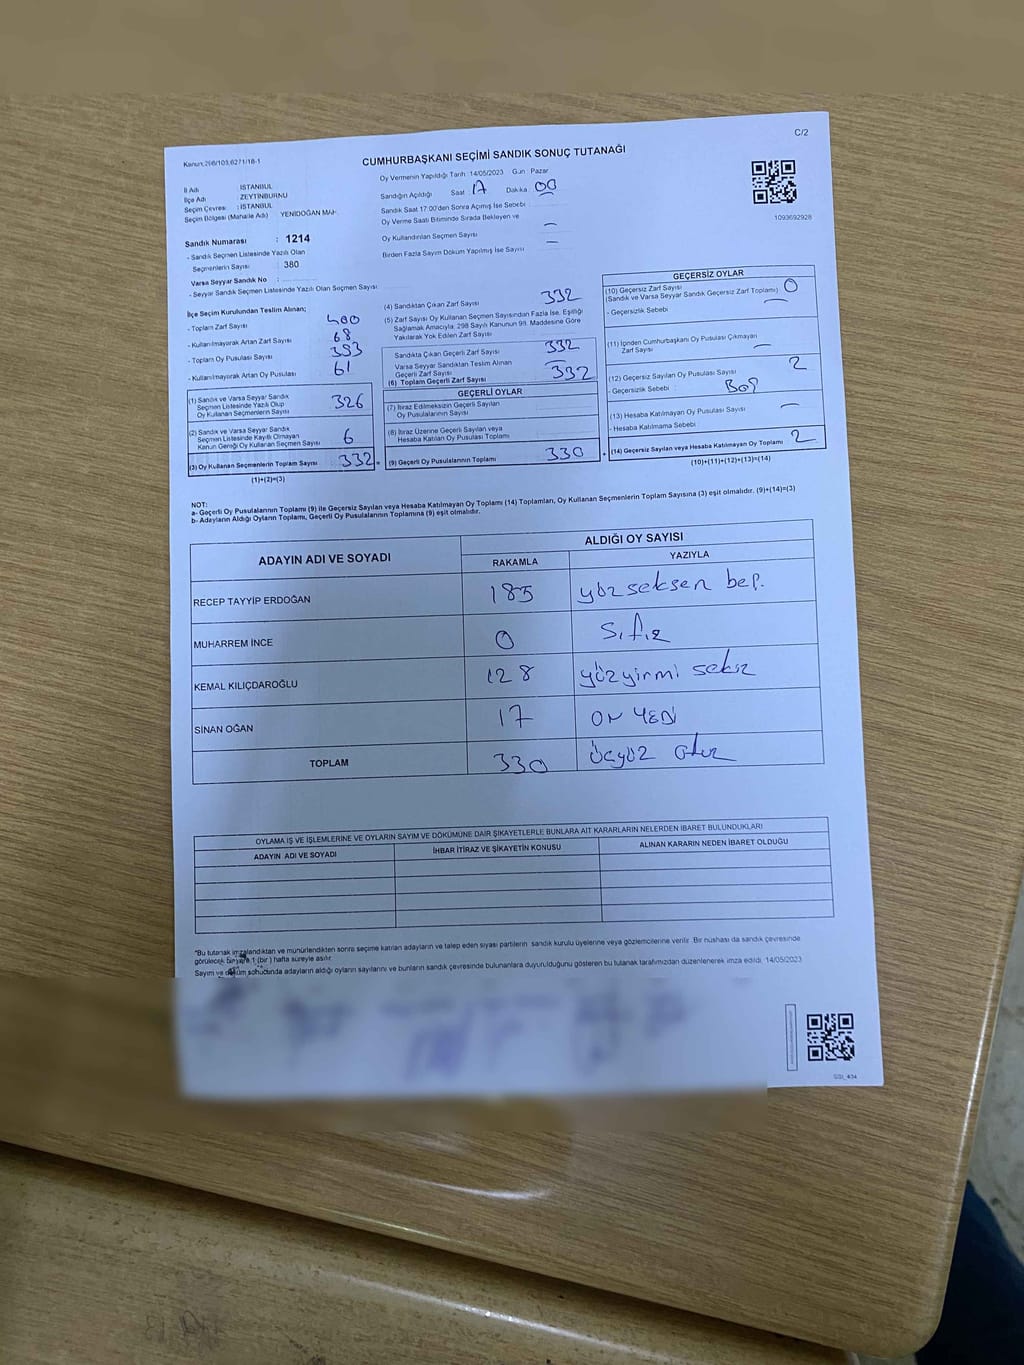 C/2
Kanun:298/103,6271/18-1
CUMHURBAŞKANI SEÇİMİ SANDIK SONUÇ TUTANAĞI
Oy Vermenin Yapıldığı Tarih :14/05/2023 Gün : Pazar
İl Adı : İSTANBUL
İlçe Adı : ZEYTİNBURNU
Seçim Çevresi : İSTANBUL
Seçim Bölgesi (Mahalle Adı) YENİDOĞAN MAH.
Sandığın Açıldığı Saat 17 Dakika 00
Sandık Saat 17:00'den Sonra Açılmış İse Sebebi :
Oy Verme Saati Bitiminde Sırada Bekleyen ve
Oy Kullandırılan Seçmen Sayısı : —
Birden Fazla Sayım Döküm Yapılmış İse Sayısı : —
1093692928
Sandık Numarası : 1214
- Sandık Seçmen Listesinde Yazılı Olan
Seçmenlerin Sayısı : 380
Varsa Seyyar Sandık No :
- Seyyar Sandık Seçmen Listesinde Yazılı Olan Seçmen Sayısı:
İlçe Seçim Kurulundan Teslim Alınan;
- Toplam Zarf Sayısı 400
- Kullanılmayarak Artan Zarf Sayısı 68
- Toplam Oy Pusulası Sayısı 393
- Kullanılmayarak Artan Oy Pusulası 61
(1) Sandık ve Varsa Seyyar Sandık
Seçmen Listesinde Yazılı Olup
Oy Kullanan Seçmenlerin Sayısı 326
(2) Sandık ve Varsa Seyyar Sandık
Seçmen Listesinde Kayıtlı Olmayan
Kanun Gereği Oy Kullanan Seçmen Sayısı 6
(3) Oy Kullanan Seçmenlerin Toplam Sayısı 332 =
(1)+(2)=(3)
(4) Sandıktan Çıkan Zarf Sayısı 332
(5) Zarf Sayısı Oy Kullanan Seçmen Sayısından Fazla İse, Eşitliği
Sağlamak Amacıyla; 298 Sayılı Kanunun 98. Maddesine Göre
Yakılarak Yok Edilen Zarf Sayısı
Sandıkta Çıkan Geçerli Zarf Sayısı 332
Varsa Seyyar Sandıktan Teslim Alınan
Geçerli Zarf Sayısı —
(6) Toplam Geçerli Zarf Sayısı 332
GEÇERLİ OYLAR
(7) İtiraz Edilmeksizin Geçerli Sayılan
Oy Pusulalarının Sayısı
(8) İtiraz Üzerine Geçerli Sayılan veya
Hesaba Katılan Oy Pusulası Toplamı
(9) Geçerli Oy Pusulalarının Toplamı 330 +
GEÇERSİZ OYLAR
(10) Geçersiz Zarf Sayısı 0
(Sandık ve Varsa Seyyar Sandık Geçersiz Zarf Toplamı)
- Geçersizlik Sebebi : —
(11) İçinden Cumhurbaşkanı Oy Pusulası Çıkmayan
Zarf Sayısı —
(12) Geçersiz Sayılan Oy Pusulası Sayısı 2
- Geçersizlik Sebebi : Boş
(13) Hesaba Katılmayan Oy Pusulası Sayısı —
- Hesaba Katılmama Sebebi
(14) Geçersiz Sayılan veya Hesaba Katılmayan Oy Toplamı 2
(10)+(11)+(12)+(13)=(14)
NOT:
a- Geçerli Oy Pusulalarının Toplamı (9) ile Geçersiz Sayılan veya Hesaba Katılmayan Oy Toplamı (14) Toplamları, Oy Kullanan Seçmenlerin Toplam Sayısına (3) eşit olmalıdır. (9)+(14)=(3)
b- Adayların Aldığı Oyların Toplamı, Geçerli Oy Pusulalarının Toplamına (9) eşit olmalıdır.
ADAYIN ADI VE SOYADI
ALDIĞI OY SAYISI
RAKAMLA YAZIYLA
RECEP TAYYİP ERDOĞAN 185 yüz seksen beş.
MUHARREM İNCE 0 Sıfır
KEMAL KILIÇDAROĞLU 128 yüzyirmi sekiz
SİNAN OĞAN 17 ON YEDİ
TOPLAM 330 üçyüz otuz
OYLAMA İŞ VE İŞLEMLERİNE VE OYLARIN SAYIM VE DÖKÜMÜNE DAİR ŞİKAYETLERLE BUNLARA AİT KARARLARIN NELERDEN İBARET BULUNDUKLARI
ADAYIN ADI VE SOYADI İHBAR İTİRAZ VE ŞİKAYETİN KONUSU ALINAN KARARIN NEDEN İBARET OLDUĞU
*Bu tutanak imzalandıktan ve mühürlendikten sonra seçime katılan adayların ve talep eden siyasi partilerin sandık kurulu üyelerine veya gözlemcilerine verilir. Bir nüshası da sandık çevresinde
görülecek bir yere 1 (bir) hafta süreyle asılır.
Sayım ve döküm sonucunda adayların aldığı oyların sayılarını ve bunların sandık çevresinde bulunanlara duyurulduğunu gösteren bu tutanak tarafımızdan düzenlenerek imza edildi. 14/05/2023